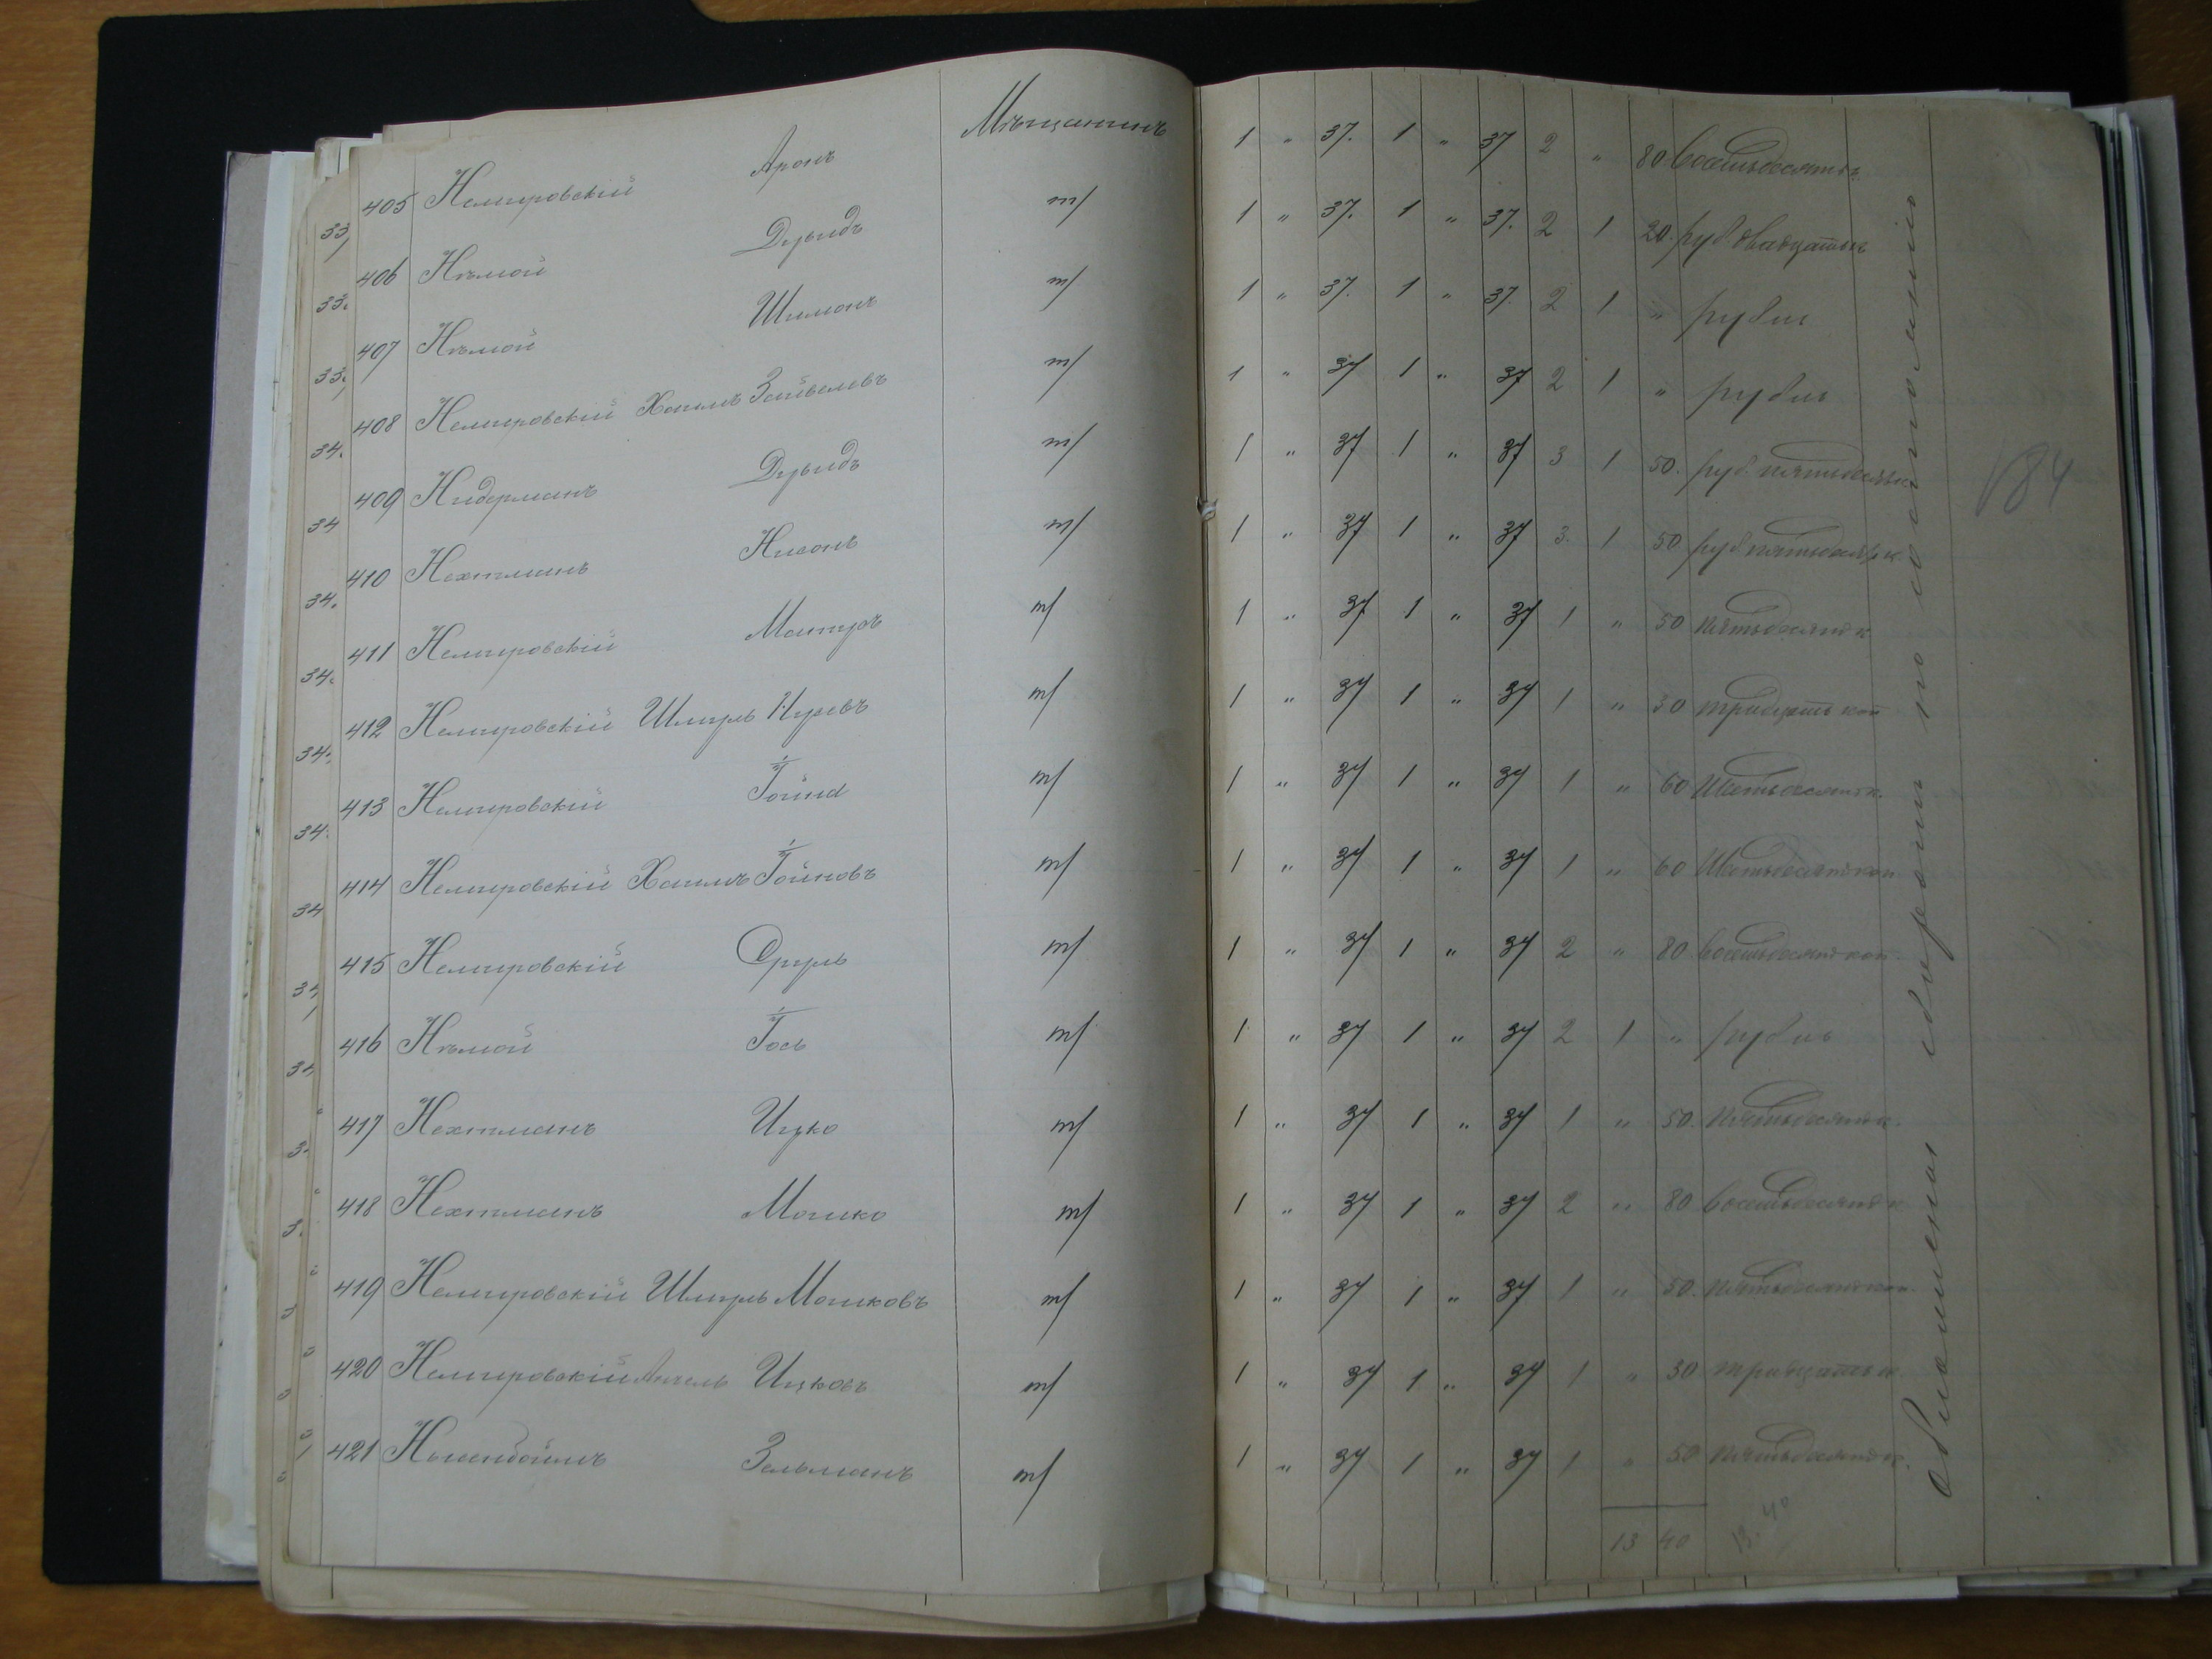 405 Немировскій Аронъ Мѣщанинъ 1 „ 37. 1 „ 37 2 „ 80 восемьдесятъ к.
406 Нѣмой Дувидъ т/ 1 „ 37. 1 „ 37. 2 1 20. руб. двадцать к
407 Нѣмой Шимонъ т/ 1 „ 37. 1 „ 37. 2 1 „ рубль
408 Немировскій Хаимъ Зайвелевъ т/ 1 „ 37 1 „ 37 2 1 „ рубль
409 Нидерманъ Дувидъ т/ 1 „ 37 1 „ 37 3 1 50. руб. пятьдесятъ к
410 Нехтманъ Нисонъ т/ 1 „ 37 1 „ 37 3. 1 50 руб. пятьдесят к.
411 Немировскій т/ 1 „ 37 1 „ 37 1 „ 50 пятьдесятъ к
412 Немировскій Шмуль т/ 1 „ 37 1 „ 37 1 „ 30 тридцать коп
413 Немировскій Іойна т/ 1 „ 37 1 „ 37 1 „ 60 Шестьдесятъ к.
414 Немировскій Хаимъ Іойновъ т/ 1 „ 37 1 „ 37 1 „ 60 Шестьдесят коп
415 Немировскій Сруль т/ 1 „ 37 1 „ 37 2 „ 80 восемьдесятъ коп.
416 Нѣмой Іось т/ 1 „ 37 1 „ 37 2 1 „ рубль
417 Нехтманъ Ицко т/ 1 „ 37 1 „ 37 1 „ 50. пятьдесятъ к.
418 Нехтманъ Мошко т/ 1 „ 37 1 „ 37 2 „ 80 восемьдесятъ к
419 Немировскій Шмуль Мошковъ т/ 1 „ 37 1 „ 37 1 „ 50. пятьдесятъ коп.
420 Немировскій Анчель Ицковъ т/ 1 „ 37 1 „ 37 1 „ 30. тридцать к.
421 Зельманъ т/ 1 „ 37 1 „ 37 1 „ 50 пятьдесятъ к.
13 40 13. 40
сборомъ по состоянію
184